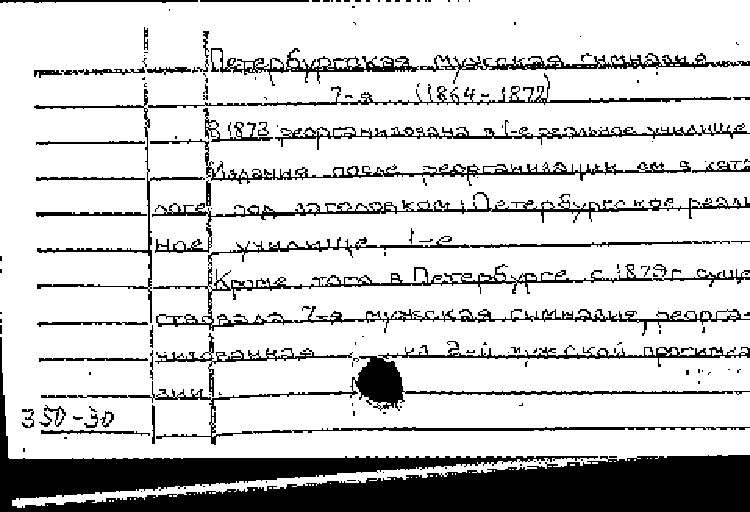 Петербургская мужская гимназия
7-я (1864-1872)
В 1873 реорганизована в 1-е реальное училище
Издания после реорганизации см в ката
логе под заголовком: Петербургское реаль
ное училище, 1-е
Кроме того в Петербурге с 1879 г суще
ствовала 7-я мужская гимназия, реорга-
низованная из 2-й мужской прогимна
зии
350-30